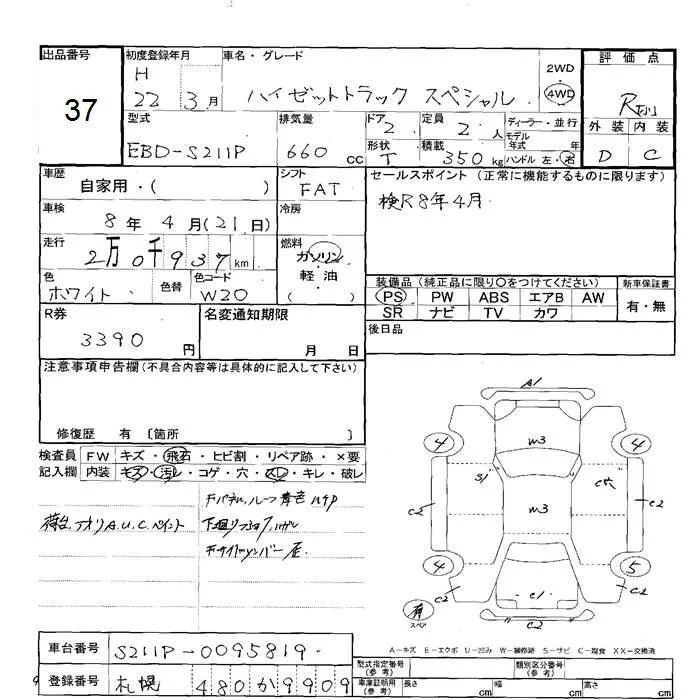 出品番号
37
初度登録年月
H
22 3月
車名・グレード
ハイゼットトラック スペシャル
2WD
4WD
評価点
R
外装 内装
D C
型式
EBD-S211P
排気量
660 cc
ドア
2
定員
2 人
ディーラー・並行
モデル
年式 年
形状
T
積載
350 kg
ハンドル 左・右
車歴
自家用・( )
シフト
FAT
車検
8年 4月(21日)
冷房
走行
2万0千937km
燃料
ガソリン
・
軽油
( )
色
ホワイト
色替
色コード
W20
セールスポイント(正常に機能するものに限ります)
検R8年4月
装備品(純正品に限り〇をつけてください)
PS PW ABS エアB AW
SR ナビ TV カワ
新車保証書
有・無
後日品
R券
3390円
名変通知期限
月 日
注意事項申告欄(不具合内容等は具体的に記入して下さい)
修復歴 有 〔箇所 〕
検査員
記入欄
FW キズ・飛石・ヒビ割・リペア跡・×要
内装 キズ・汚レ・コゲ・穴・スレ・キレ・破レ
荷台、アオリA.U.C.ペイント
A1
4
4
m3
S1
C2
C2
m3
4
5
C2
C1
C2
C2
有
スペア
A-キズ E-エクボ U-凹み W-補修跡 S-サビ C-腐食 XX-交換済
車台番号
S211P-0095819
登録番号
札幌 480か9909
型式指定番号
(参考)
類別区分番号
(参考)
車庫証明用
(参考)
長さ cm
幅 cm
高さ cm